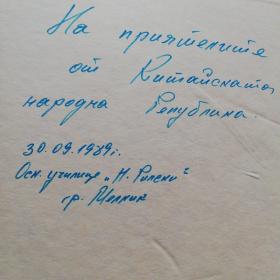 На приятелите
от Китайската
народна Република.
30.09.1989г.
Осн. училище „Н. Рилски“
гр. Мелник